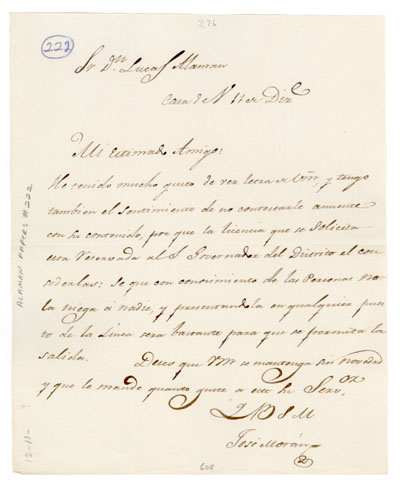 276
222
Sr. Dn. Lucas Alaman
Casa de V. 11 de Dice
Mi Estimado Amigo:
He tenido mucho gusto de ver letra de Vm, y tengo
tambien el sentimiento de no contestarle
con su contenido, por que la licencia que se solicita
esta reservada al S. Governador del Distrito el con-
cederlas: se que con conocimiento de las Personas no
la niega á nadie, y presentandola en qualquier pun-
to de la Linea sera bastante para que se permita la
salida.
Deseo que Vm se mantenga sin novedad
y que le mande quanto guste a este su Servor.
Q B S M
José Morán
ALAMAN PAPERS #222
12-11-
608